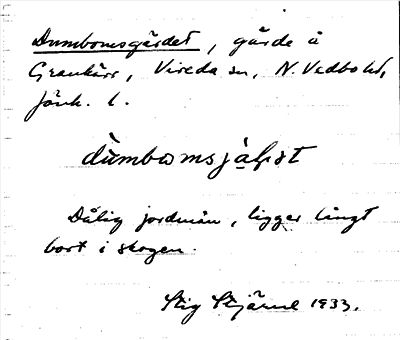 Dumbomsgärdet, gärde å
Grankärr, Vireda sn, N. Vedbo hd,
Jönk. l.
dùmbomsjąḷŗət
Dålig jordmån, ligger långt
bort i skogen.
Stig Stjärne 1933.